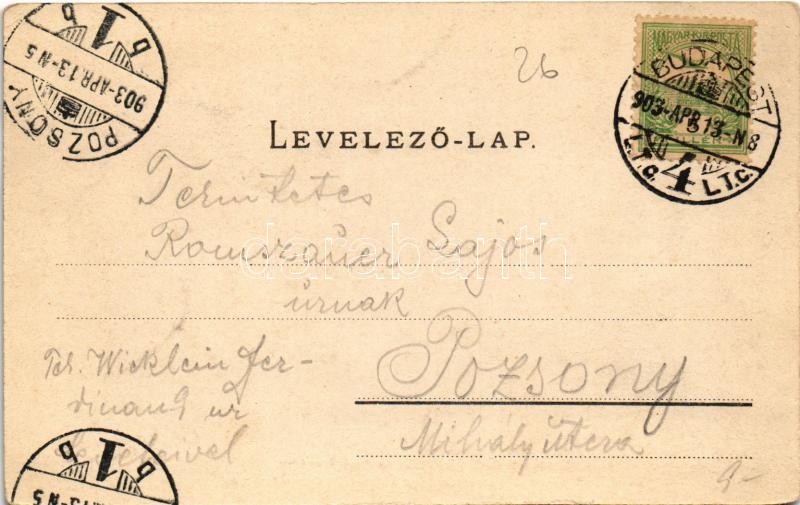 MAGYAR KIR. POSTA
BUDAPEST
903-APR 13-N 8
4
L.T.C.
L.T.C.
POZSONY
903-APR 13-N 5
1
b b
26
LEVELEZŐ-LAP.
Romszauer Lajos
úrnak
Pozsony
Mihály utcza
Tek. Wicklein Fer-
dinand úr
leveleivel
b 1 b
13-N 5
darabanth